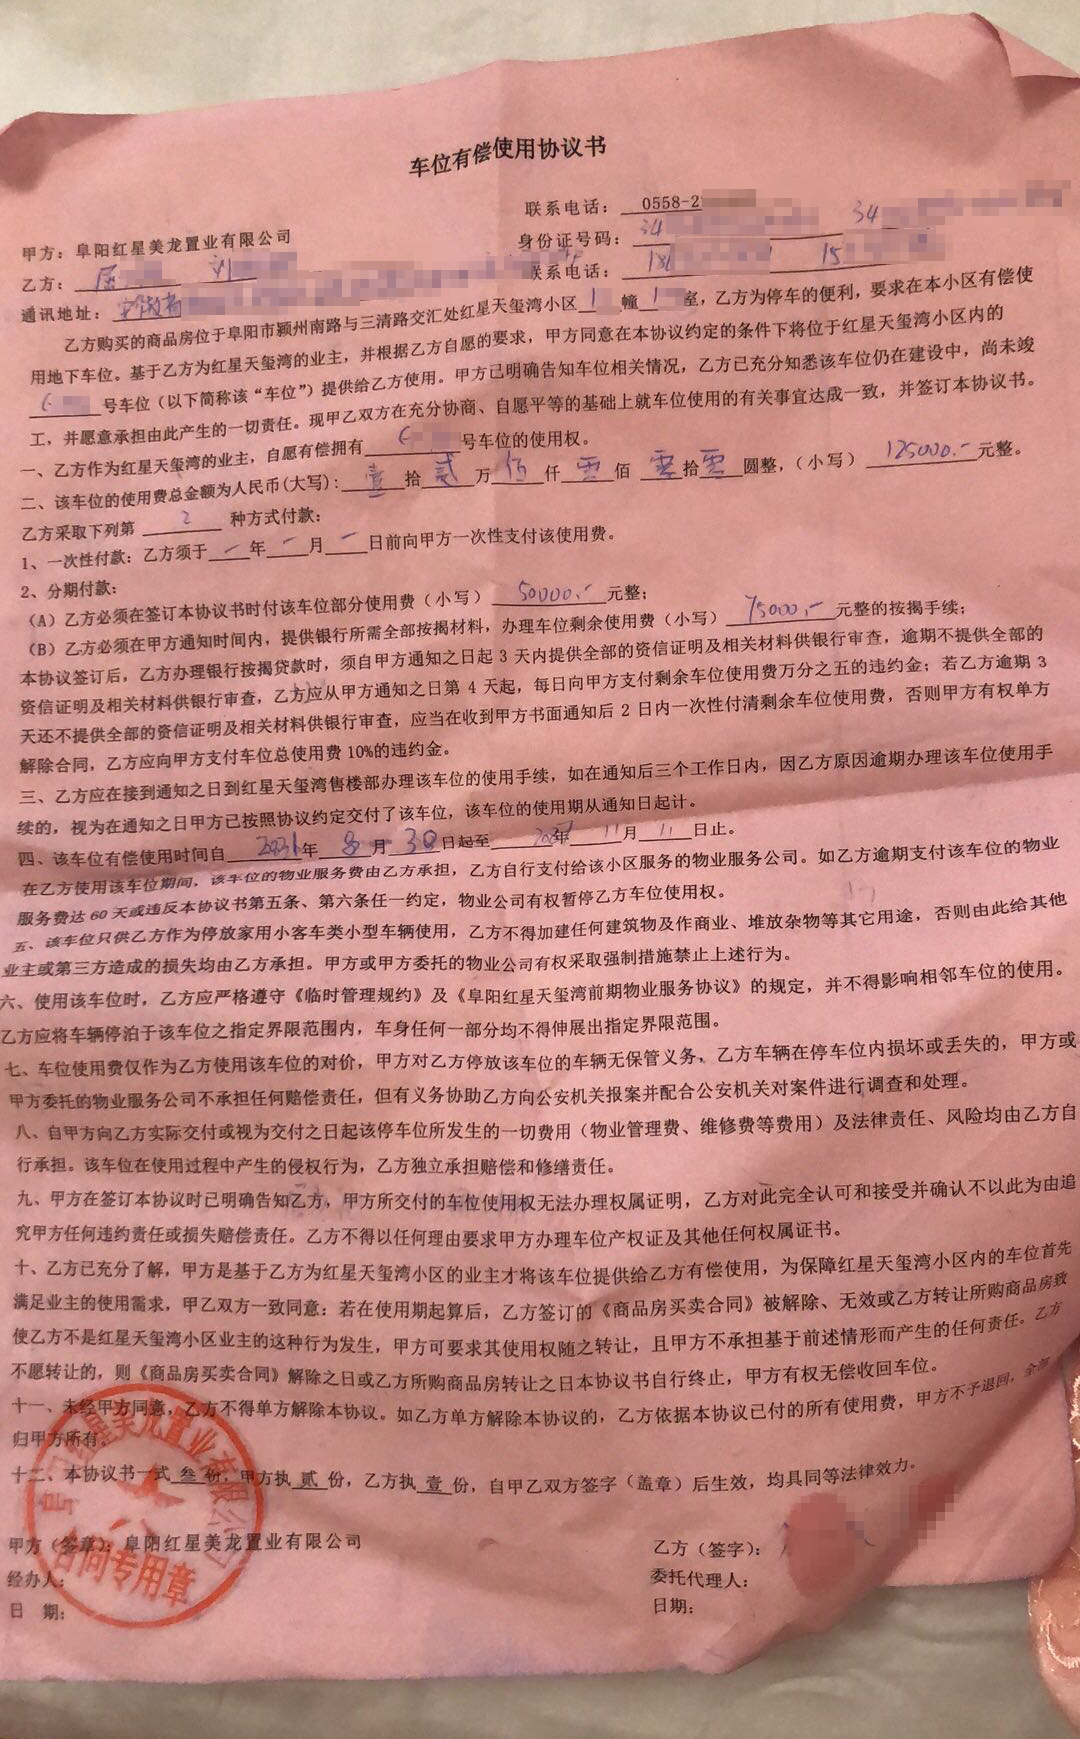 车位有偿使用协议书
联系电话：0558-2
甲方：阜阳红星美龙置业有限公司
身份证号码：34 34
乙方：屈 刘
联系电话：181 15
通讯地址：安徽省
乙方购买的商品房位于阜阳市颍州南路与三清路交汇处红星天玺湾小区1 幢1 室，乙方为停车的便利，要求在本小区有偿使
用地下车位。基于乙方为红星天玺湾的业主，并根据乙方自愿的要求，甲方同意在本协议约定的条件下将位于红星天玺湾小区内的
号车位（以下简称该“车位”）提供给乙方使用。甲方已明确告知车位相关情况，乙方已充分知悉该车位仍在建设中，尚未竣
工，并愿意承担由此产生的一切责任。现甲乙双方在充分协商、自愿平等的基础上就车位使用的有关事宜达成一致，并签订本协议书。
一、乙方作为红星天玺湾的业主，自愿有偿拥有 号车位的使用权。
二、该车位的使用费总金额为人民币(大写)：壹拾贰万伍仟零佰零拾零圆整，（小写）125000.-元整。
乙方采取下列第 2 种方式付款：
1、一次性付款：乙方须于 - 年 - 月 - 日前向甲方一次性支付该使用费。
2、分期付款：
（A）乙方必须在签订本协议书时付该车位部分使用费（小写）50000.-元整；
（B）乙方必须在甲方通知时间内，提供银行所需全部按揭材料，办理车位剩余使用费（小写）75000.-元整的按揭手续；
本协议签订后，乙方办理银行按揭贷款时，须自甲方通知之日起 3 天内提供全部的资信证明及相关材料供银行审查，逾期不提供全部的
资信证明及相关材料供银行审查，乙方应从甲方通知之日第 4 天起，每日向甲方支付剩余车位使用费万分之五的违约金；若乙方逾期 3
天还不提供全部的资信证明及相关材料供银行审查，应当在收到甲方书面通知后 2 日内一次性付清剩余车位使用费，否则甲方有权单方
解除合同，乙方应向甲方支付车位总使用费 10%的违约金。
三、乙方应在接到通知之日到红星天玺湾售楼部办理该车位的使用手续，如在通知后三个工作日内，因乙方原因逾期办理该车位使用手
续的，视为在通知之日甲方已按照协议约定交付了该车位，该车位的使用期从通知日起计。
四、该车位有偿使用时间自 年 8 月 30 日起至 年 11 月 11 日止。
在乙方使用该车位期间，该车位的物业服务费由乙方承担，乙方自行支付给该小区服务的物业服务公司。如乙方逾期支付该车位的物业
服务费达 60 天或违反本协议书第五条、第六条任一约定，物业公司有权暂停乙方车位使用权。
五、该车位只供乙方作为停放家用小客车类小型车辆使用，乙方不得加建任何建筑物及作商业、堆放杂物等其它用途，否则由此给其他
业主或第三方造成的损失均由乙方承担。甲方或甲方委托的物业公司有权采取强制措施禁止上述行为。
六、使用该车位时，乙方应严格遵守《临时管理规约》及《阜阳红星天玺湾前期物业服务协议》的规定，并不得影响相邻车位的使用。
乙方应将车辆停泊于该车位之指定界限范围内，车身任何一部分均不得伸展出指定界限范围。
七、车位使用费仅作为乙方使用该车位的对价，甲方对乙方停放该车位的车辆无保管义务，乙方车辆在停车位内损坏或丢失的，甲方或
甲方委托的物业服务公司不承担任何赔偿责任，但有义务协助乙方向公安机关报案并配合公安机关对案件进行调查和处理。
八、自甲方向乙方实际交付或视为交付之日起该停车位所发生的一切费用（物业管理费、维修费等费用）及法律责任、风险均由乙方自
行承担。该车位在使用过程中产生的侵权行为，乙方独立承担赔偿和修缮责任。
九、甲方在签订本协议时已明确告知乙方，甲方所交付的车位使用权无法办理权属证明，乙方对此完全认可和接受并确认不以此为由追
究甲方任何违约责任或损失赔偿责任。乙方不得以任何理由要求甲方办理车位产权证及其他任何权属证书。
十、乙方已充分了解，甲方是基于乙方为红星天玺湾小区的业主才将该车位提供给乙方有偿使用，为保障红星天玺湾小区内的车位首先
满足业主的使用需求，甲乙双方一致同意：若在使用期起算后，乙方签订的《商品房买卖合同》被解除、无效或乙方转让所购商品房致
使乙方不是红星天玺湾小区业主的这种行为发生，甲方可要求其使用权随之转让，且甲方不承担基于前述情形而产生的任何责任。乙方
不愿转让的，则《商品房买卖合同》解除之日或乙方所购商品房转让之日本协议书自行终止，甲方有权无偿收回车位。
十一、未经甲方同意，乙方不得单方解除本协议。如乙方单方解除本协议的，乙方依据本协议已付的所有使用费，甲方不予退回，全部
归甲方所有。
十二、本协议书一式叁份，甲方执贰份，乙方执壹份，自甲乙双方签字（盖章）后生效，均具同等法律效力。
甲方（签章）：阜阳红星美龙置业有限公司
乙方（签字）：
经办人：
委托代理人：
日 期：
日期：
阜阳红星美龙置业有限公司
合同专用章